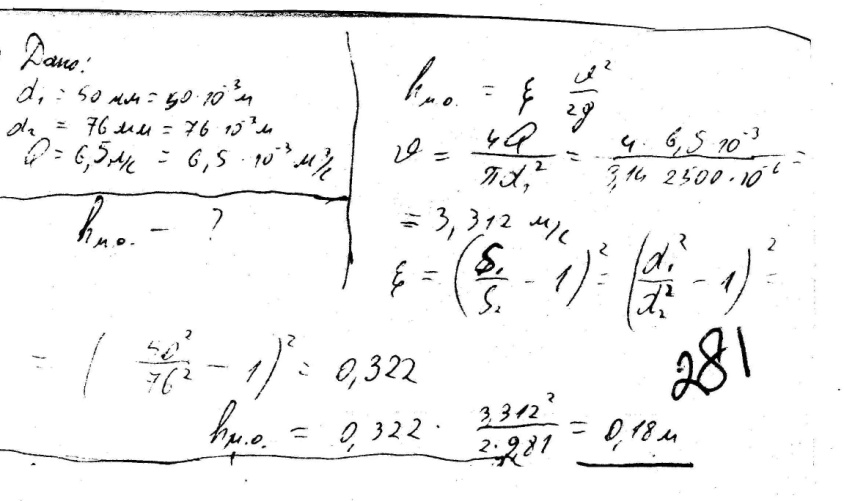 Дано:
d₁ = 50 мм = 50·10⁻³ м
d₂ = 76 мм = 76·10⁻³ м
Q = 6,5 л/с = 6,5·10⁻³ м³/с
hм.о. — ?
hм.о. = ξ υ²/2g
υ = 4Q/πd₁² = 4·6,5·10⁻³/3,14 2500·10⁻⁶ =
= 3,312 м/с
ξ = (S₁/S₂ − 1)² = (d₁²/d₂² − 1)² =
= (50²/76² − 1)² = 0,322
281
hм.о. = 0,322 · 3,312²/2·981 = 0,18 м